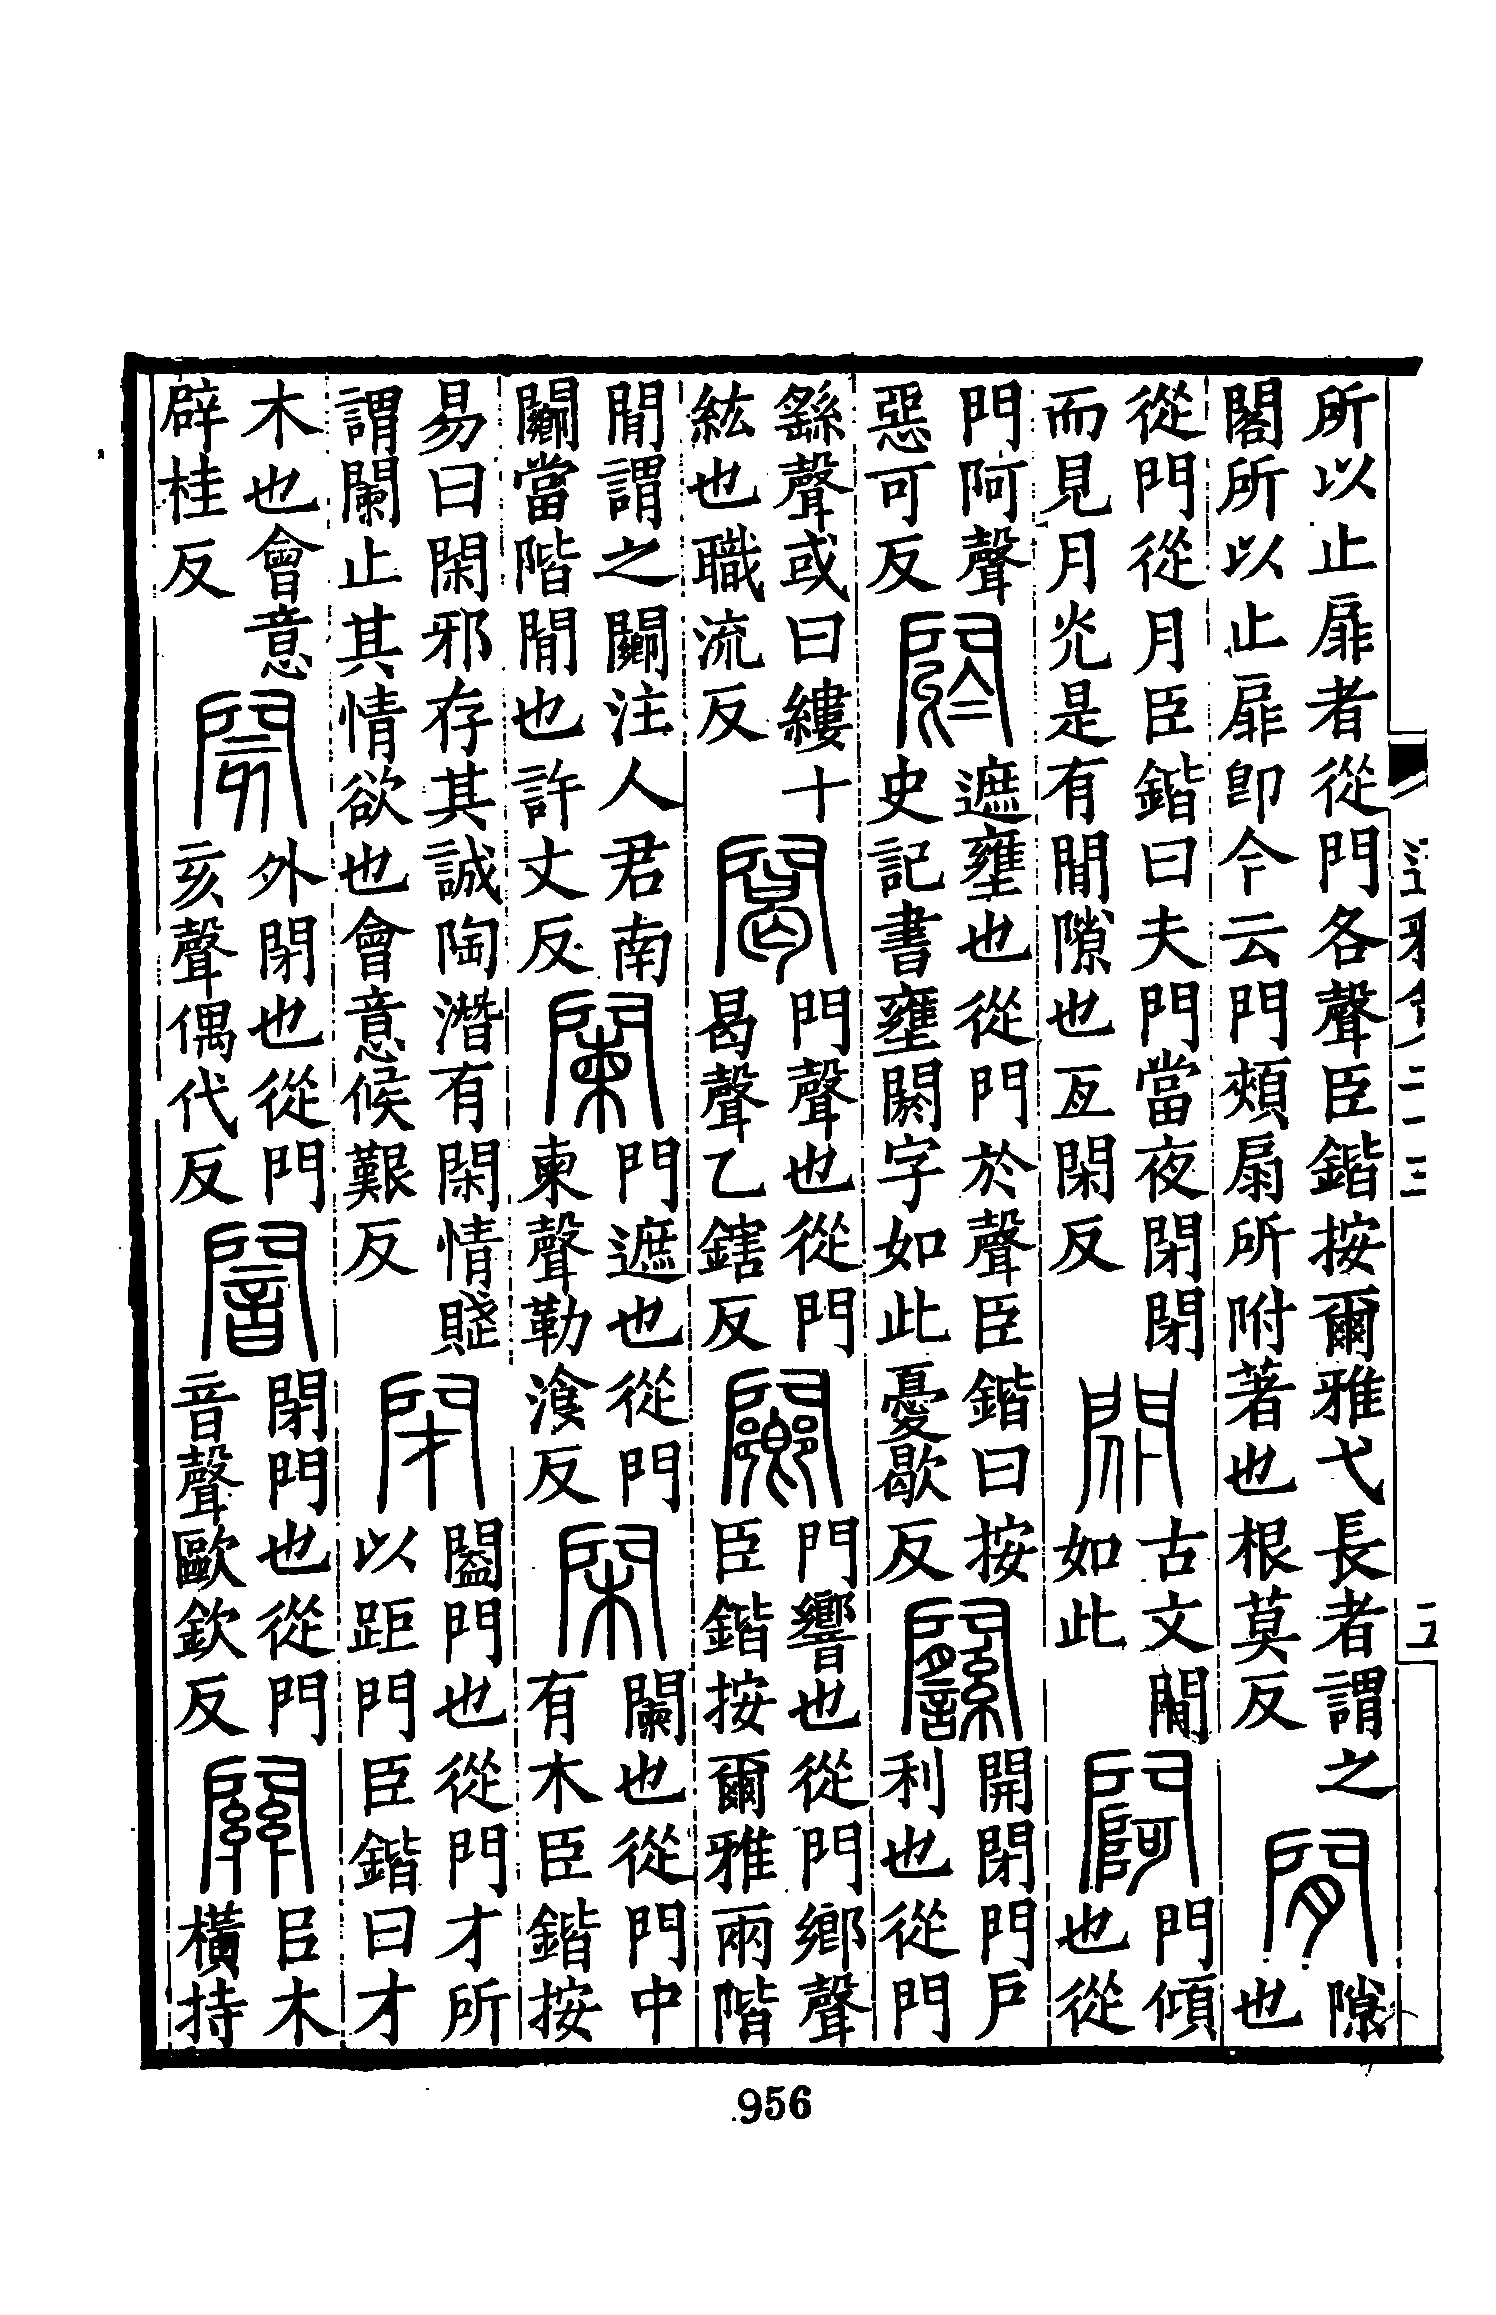 所以止扉者從門各聲臣鍇按爾雅弋長者謂之
閣所以止扉卽今云門頰扇所附著也根莫反
閒
隙
也
從門從月臣鍇曰夫門當夜閉閉
而見月光是有閒隙也亙閑反
古文閒
如此
門傾
也從
門阿聲
惡可反
閼
遮壅也從門於聲臣鍇曰按
史記書壅閼字如此憂歇反
開閉門戶
利也從門
繇聲或曰縷十
紘也職流反
門聲也從門
曷聲乙鎋反
闀
門響也從門鄉聲
臣鍇按爾雅兩階
閒謂之闀注人君南
闀當階閒也許丈反
闌
門遮也從門
柬聲勒湌反
閑
闌也從門中
有木臣鍇按
易曰閑邪存其誠陶潛有閑情賦
謂闌止其情欲也會意候艱反
閉
闔門也從門才所
以距門臣鍇曰才
木也會意
辟桂反
閡
外閉也從門
亥聲偶代反
闇
閉門也從門
音聲歐欽反
關
㠯木
橫持
956